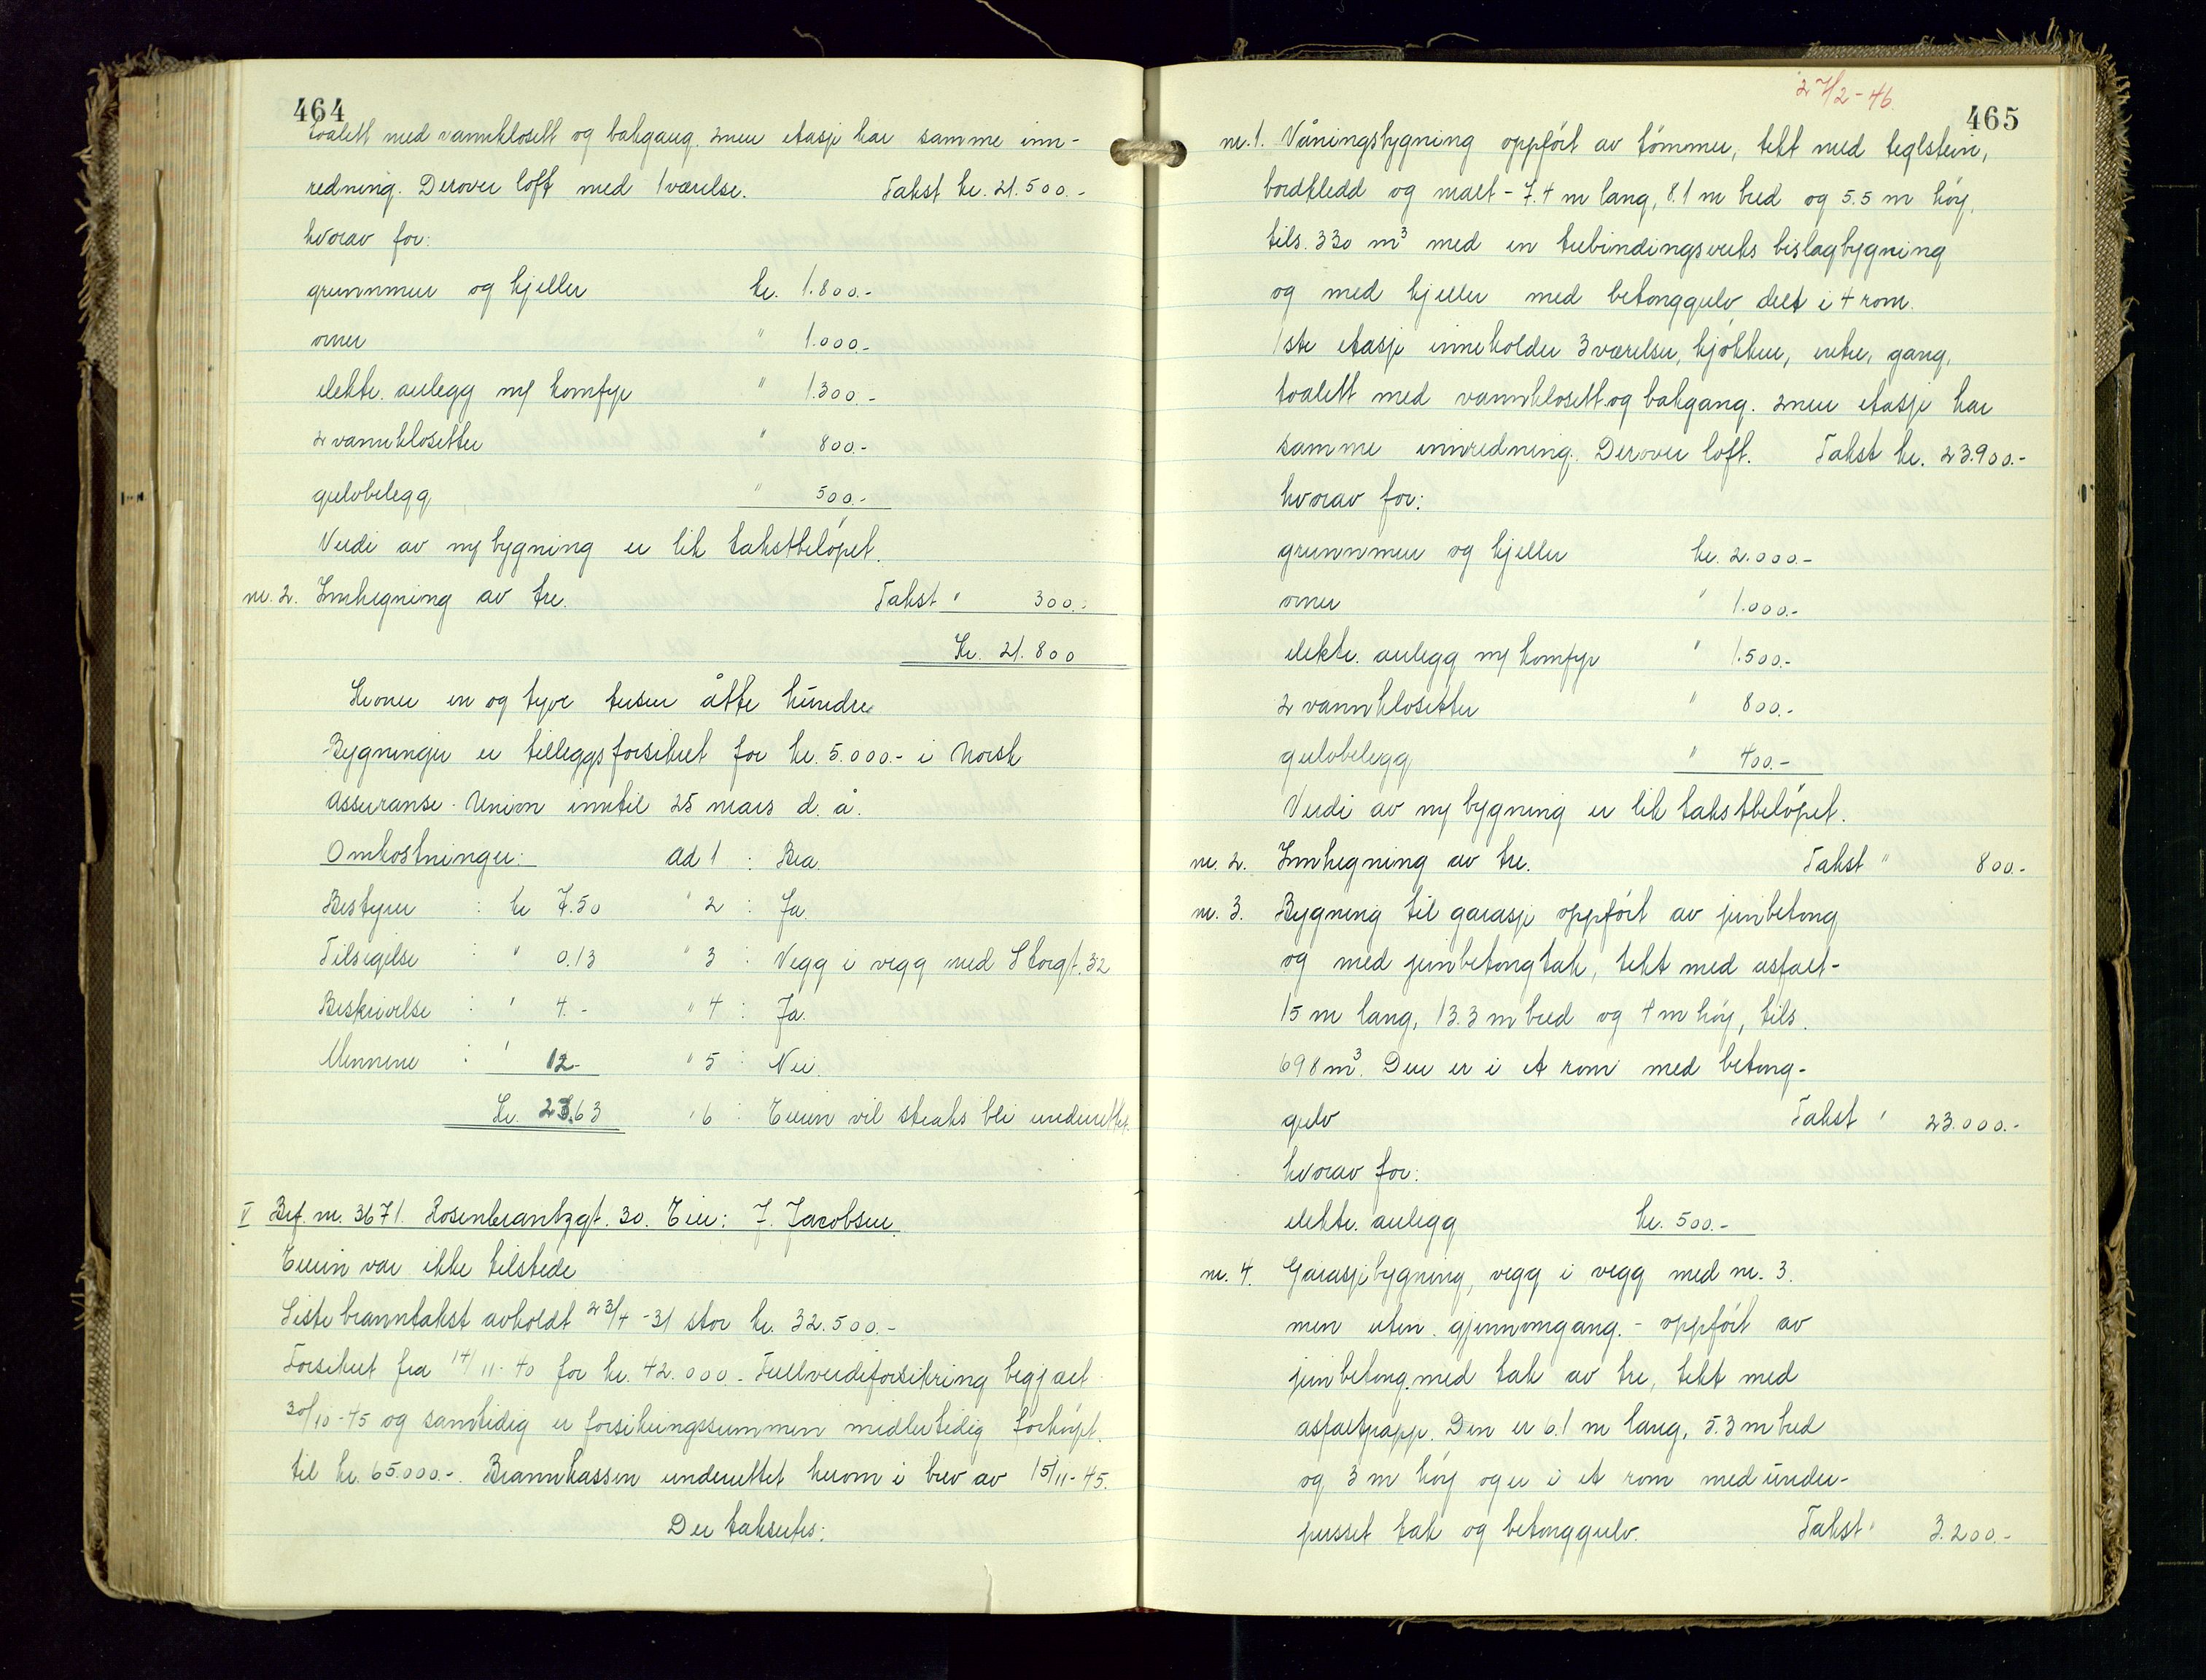 464
toalett med vannklosett og bakgang. 2nen etasje har samme inn-
redning. Derover loft med 1 værelse. Takst kr. 21.500.-
hvorav for:
grunnmur og kjeller kr. 1.800.-
ovner " 1.000.-
elektr. anlegg m/ komfyr " 1.300.-
2 vannklosetter " 800.-
gulvbelegg " 500.-
Verdi av ny bygning er lik takstbeløpet.
nr. 2. Innhegning av tre. Takst " 300.-
Kr. 21.800
Kroner en og tyve tusen åtte hundre
Bygningen er tilleggsforsikret for kr. 5.000.- i Norsk
Assuranse-Union inntil 25 mars d. å.
Omkostninger: ad 1 : Bra.
Bestyrer : kr 7.50 " 2 : Ja.
Tilsigelse : " 0.13 " 3 : Vegg i vegg med Storgt. 32
Beskrivelse : " 4.- " 4 : Ja.
Mennene : " 12.- " 5 : Nei.
Kr. 23.63 " 6 : Eieren vil straks bli underrettet.
V Brf. nr. 3671. Rosenkrantzgt. 30. Eier: J. Jacobsen.
Eieren var ikke tilstede
Siste branntakst avholdt 23/4 -31 stor kr. 32.500.-
Forsikret fra 14/11-40 for kr. 42.000.- Fullverdiforsikring begjært
30/10-45 og samtidig er forsikringssummen midlertidig forhøyet
til kr. 65.000.-. Brannkassen underrettet herom i brev av 15/11-45.
Der taksertes:
27/2-46.
465
nr. 1. Våningsbygning oppført av tømmer, tekt med teglstein,
bordkledd og malt - 7.4 m lang, 8.1 m bred og 5.5 m høy,
tils. 330 m³ med en trebindingsverks bislagbygning
og med kjeller med betonggulv delt i 4 rom.
1ste etasje inneholder 3 værelser, kjøkken, entre, gang,
toalett med vannklosett og bakgang. 2nen etasje har
samme innredning. Derover loft. Takst kr. 23.900.-
hvorav for:
grunnmur og kjeller kr. 2.000.-
ovner " 1.000.-
elektr. anlegg m/ komfyr " 1.500.-
2 vannklosetter " 800.-
gulvbelegg " 400.-
Verdi av ny bygning er lik takstbeløpet.
nr. 2. Innhegning av tre. Takst " 800.-
nr. 3. Bygning til garasje oppført av jernbetong
og med jernbetongtak, tekt med asfalt-
15 m lang, 13.3 m bred og 4 m høy, tils.
698 m³. Den er i et rom med betong-
gulv Takst " 23.000.-
hvorav for:
elektr. anlegg kr. 500.-
nr. 4. Garasjebygning, vegg i vegg med nr. 3.
men uten gjennomgang. - oppført av
jernbetong med tak av tre, tekt med
asfaltpapp. Den er 6.1 m lang, 5.3 m bred
og 3 m høy og er i et rom med under-
pusset tak og betonggulv. Takst " 3.200.-